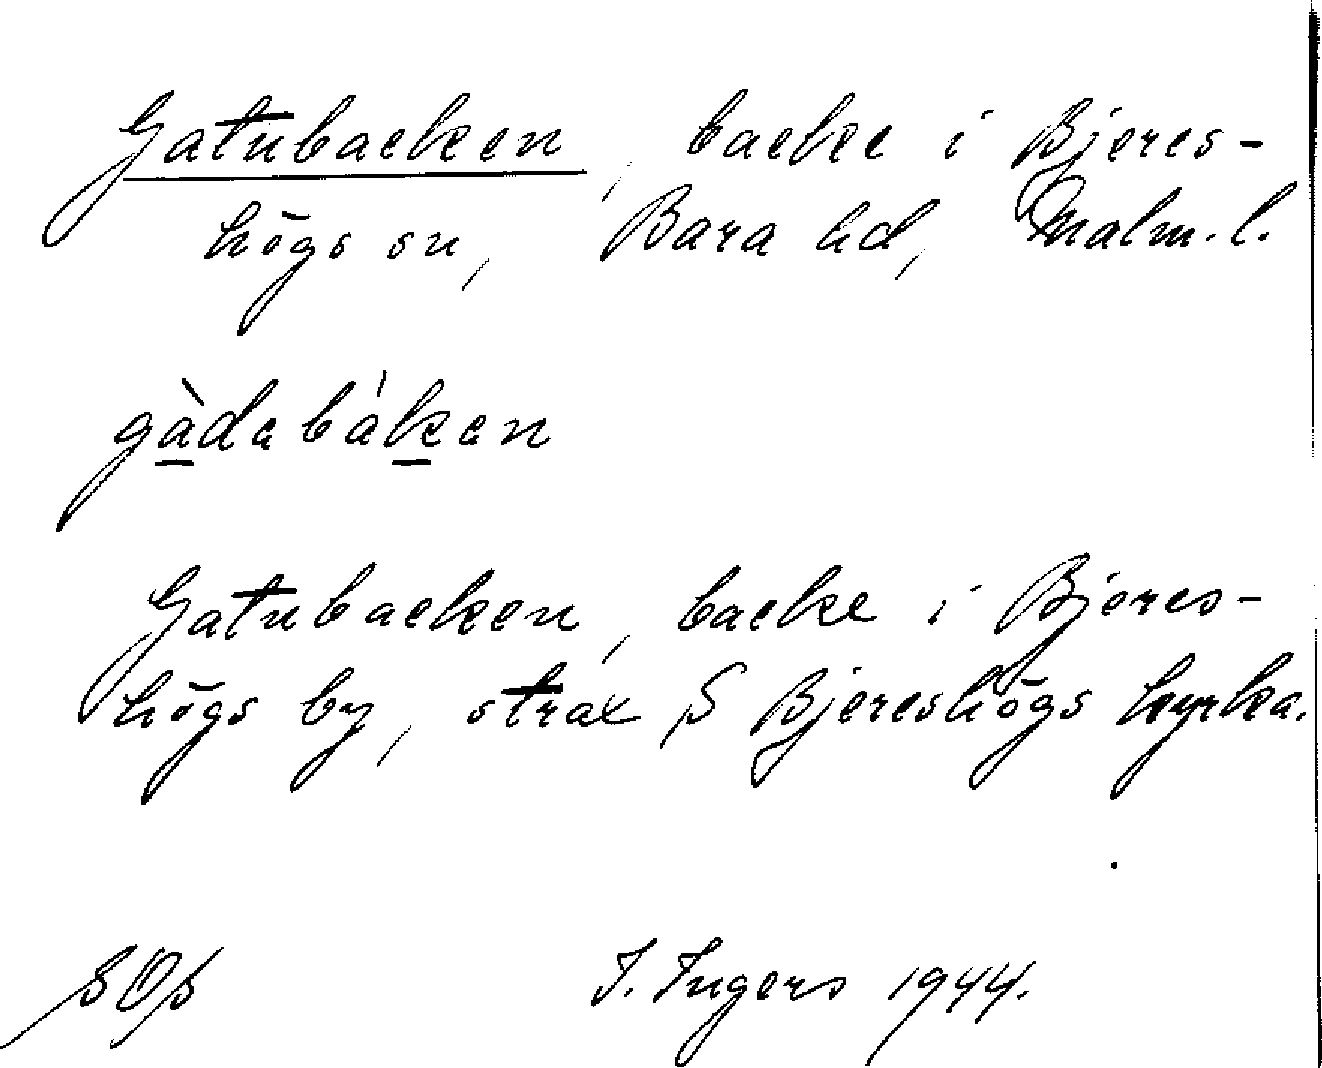 Gatubacken, backe i Bjeres-
högs sn, Bara hd, Malm. l.
gàdabáken
Gatubacken, backe i Bjeres-
högs by, strax S Bjereshögs kyrka.
I. Ingers 1944.